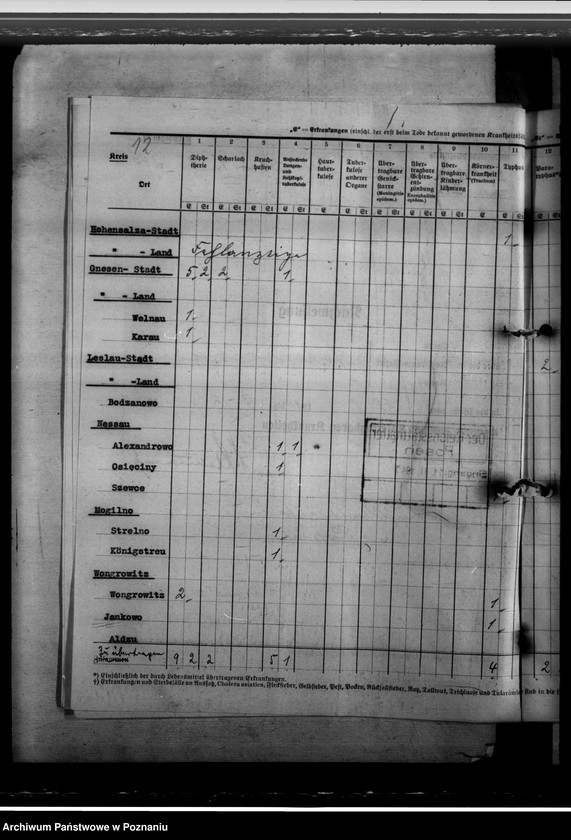 1.
„E“ — Erkrankungen (einschl. der erst beim Tode bekannt gewordenen
12
Kreis
Ort
1 2 3 4 5 6 7 8 9 10 11 12
Diphtherie
Scharlach
Keuchhusten
Ansteckende Lungen- und Kehlkopftuberkulose
Hauttuberkulose
Tuberkulose anderer Organe
Übertragbare Genickstarre (Meningitis epidem.)
Übertragbare Gehirnentzündung (Encephalitis epidem.)
Übertragbare Kinderlähmung
Körnerkrankheit (Trachom)
Typhus
Para-
E St E St E St E St E St E St E St E St E St E E St E
Hohensalza-Stadt 1
" - Land Fehlanzeige
Gnesen- Stadt 5 2 2 1
" - Land
Welnau 1
Karau 1
Leslau-Stadt 2
" -Land
Bodzanowo
Nessau
Alexandrowo 1 1
Osięciny 1
Szewce
Mogilno
Strelno 1
Königstreu 1
Wongrowitz
Wongrowitz 2 1
Jankowo 1
Aldau
Zu übertragen 9 2 2 5 1 4 2
*) Einschließlich der durch Lebensmittel übertragenen Erkrankungen.
†) Erkrankungen und Sterbefälle an Aussatz, Cholera asiatica, Fleckfieber, Gelbfieber, Pest, Pocken, Rückfallfieber, Rotz, Tollwut, Trichinose und Tularämie sind in die
Archiwum Państwowe w Poznaniu